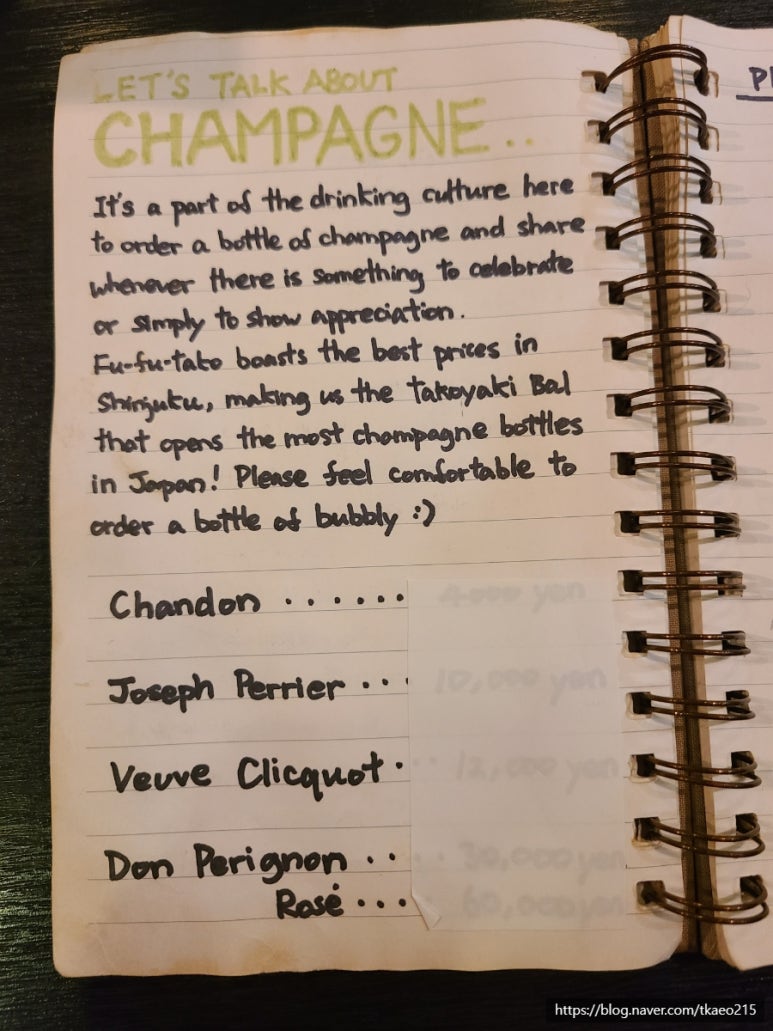 LET'S TALK ABOUT
CHAMPAGNE..
It's a part of the drinking culture here
to order a bottle of champagne and share
whenever there is something to celebrate
or simply to show appreciation.
Fu-fu-tako boasts the best prices in
Shinjuku, making us the takoyaki Bal
that opens the most champagne bottles
in Japan! Please feel comfortable to
order a bottle of bubbly :)
Chandon ...... 4000 yen
Joseph Perrier ... 10,000 yen
Veuve Clicquot ... 12,000 yen
Don Perignon ... 30,000 yen
Rosé .... 60,000 yen
https://blog.naver.com/tkaeo215